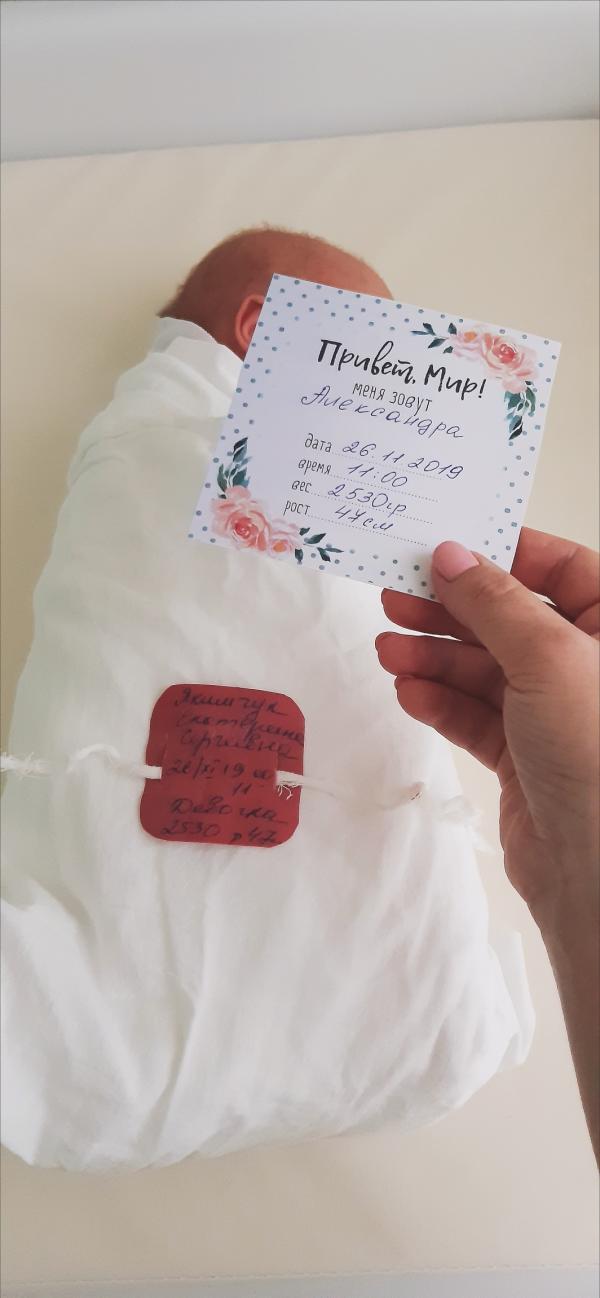 Привет, Мир!
меня зовут
Александра
дата 26.11.2019
время 11:00
вес 2530гр
рост 47см
Якимчук
Екатерина
Сергеевна
26/XI 19 00
11
Девочка
2530 р 47